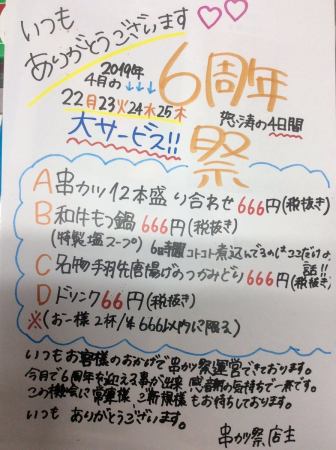 いつも
ありがとうございます
2019年
4月の↓↓↓
22月23火24水25木
6周年
祭
怒濤の4日間
大サービス!!
A串カツ12本盛り合わせ666円(税抜き)
B和牛もつ鍋666円(税抜き)
(特製塩スープ) 6時間コトコト煮込んでるのはここだけの話!!
C名物手羽先唐揚げのつかみどり666円(税抜き)
Dドリンク66円(税抜き)
※(お一様2杯/¥666以内に限る)
いつもお客様のおかげで串カツ祭運営できております。
今月で6周年を迎える事が出来 感謝の気持ちで一杯です。
この機会に常連様、ご新規様もお待ちしております。
いつも ありがとうございます。
串カツ祭 店主